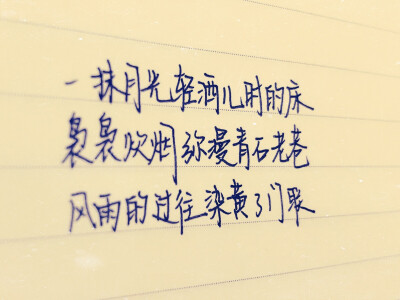 一抹月光轻洒儿时的床
袅袅炊烟弥漫青石老巷
风雨的过往染黄了门眼